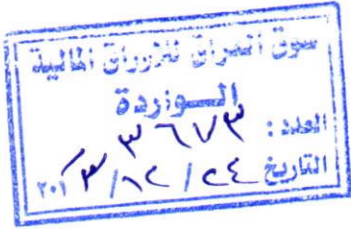 سوق العراق للاوراق المالية
الـــواردة
العدد : ٣٦٧٣
التاريخ ٢٤ / ١٢ / ٢٠١٣